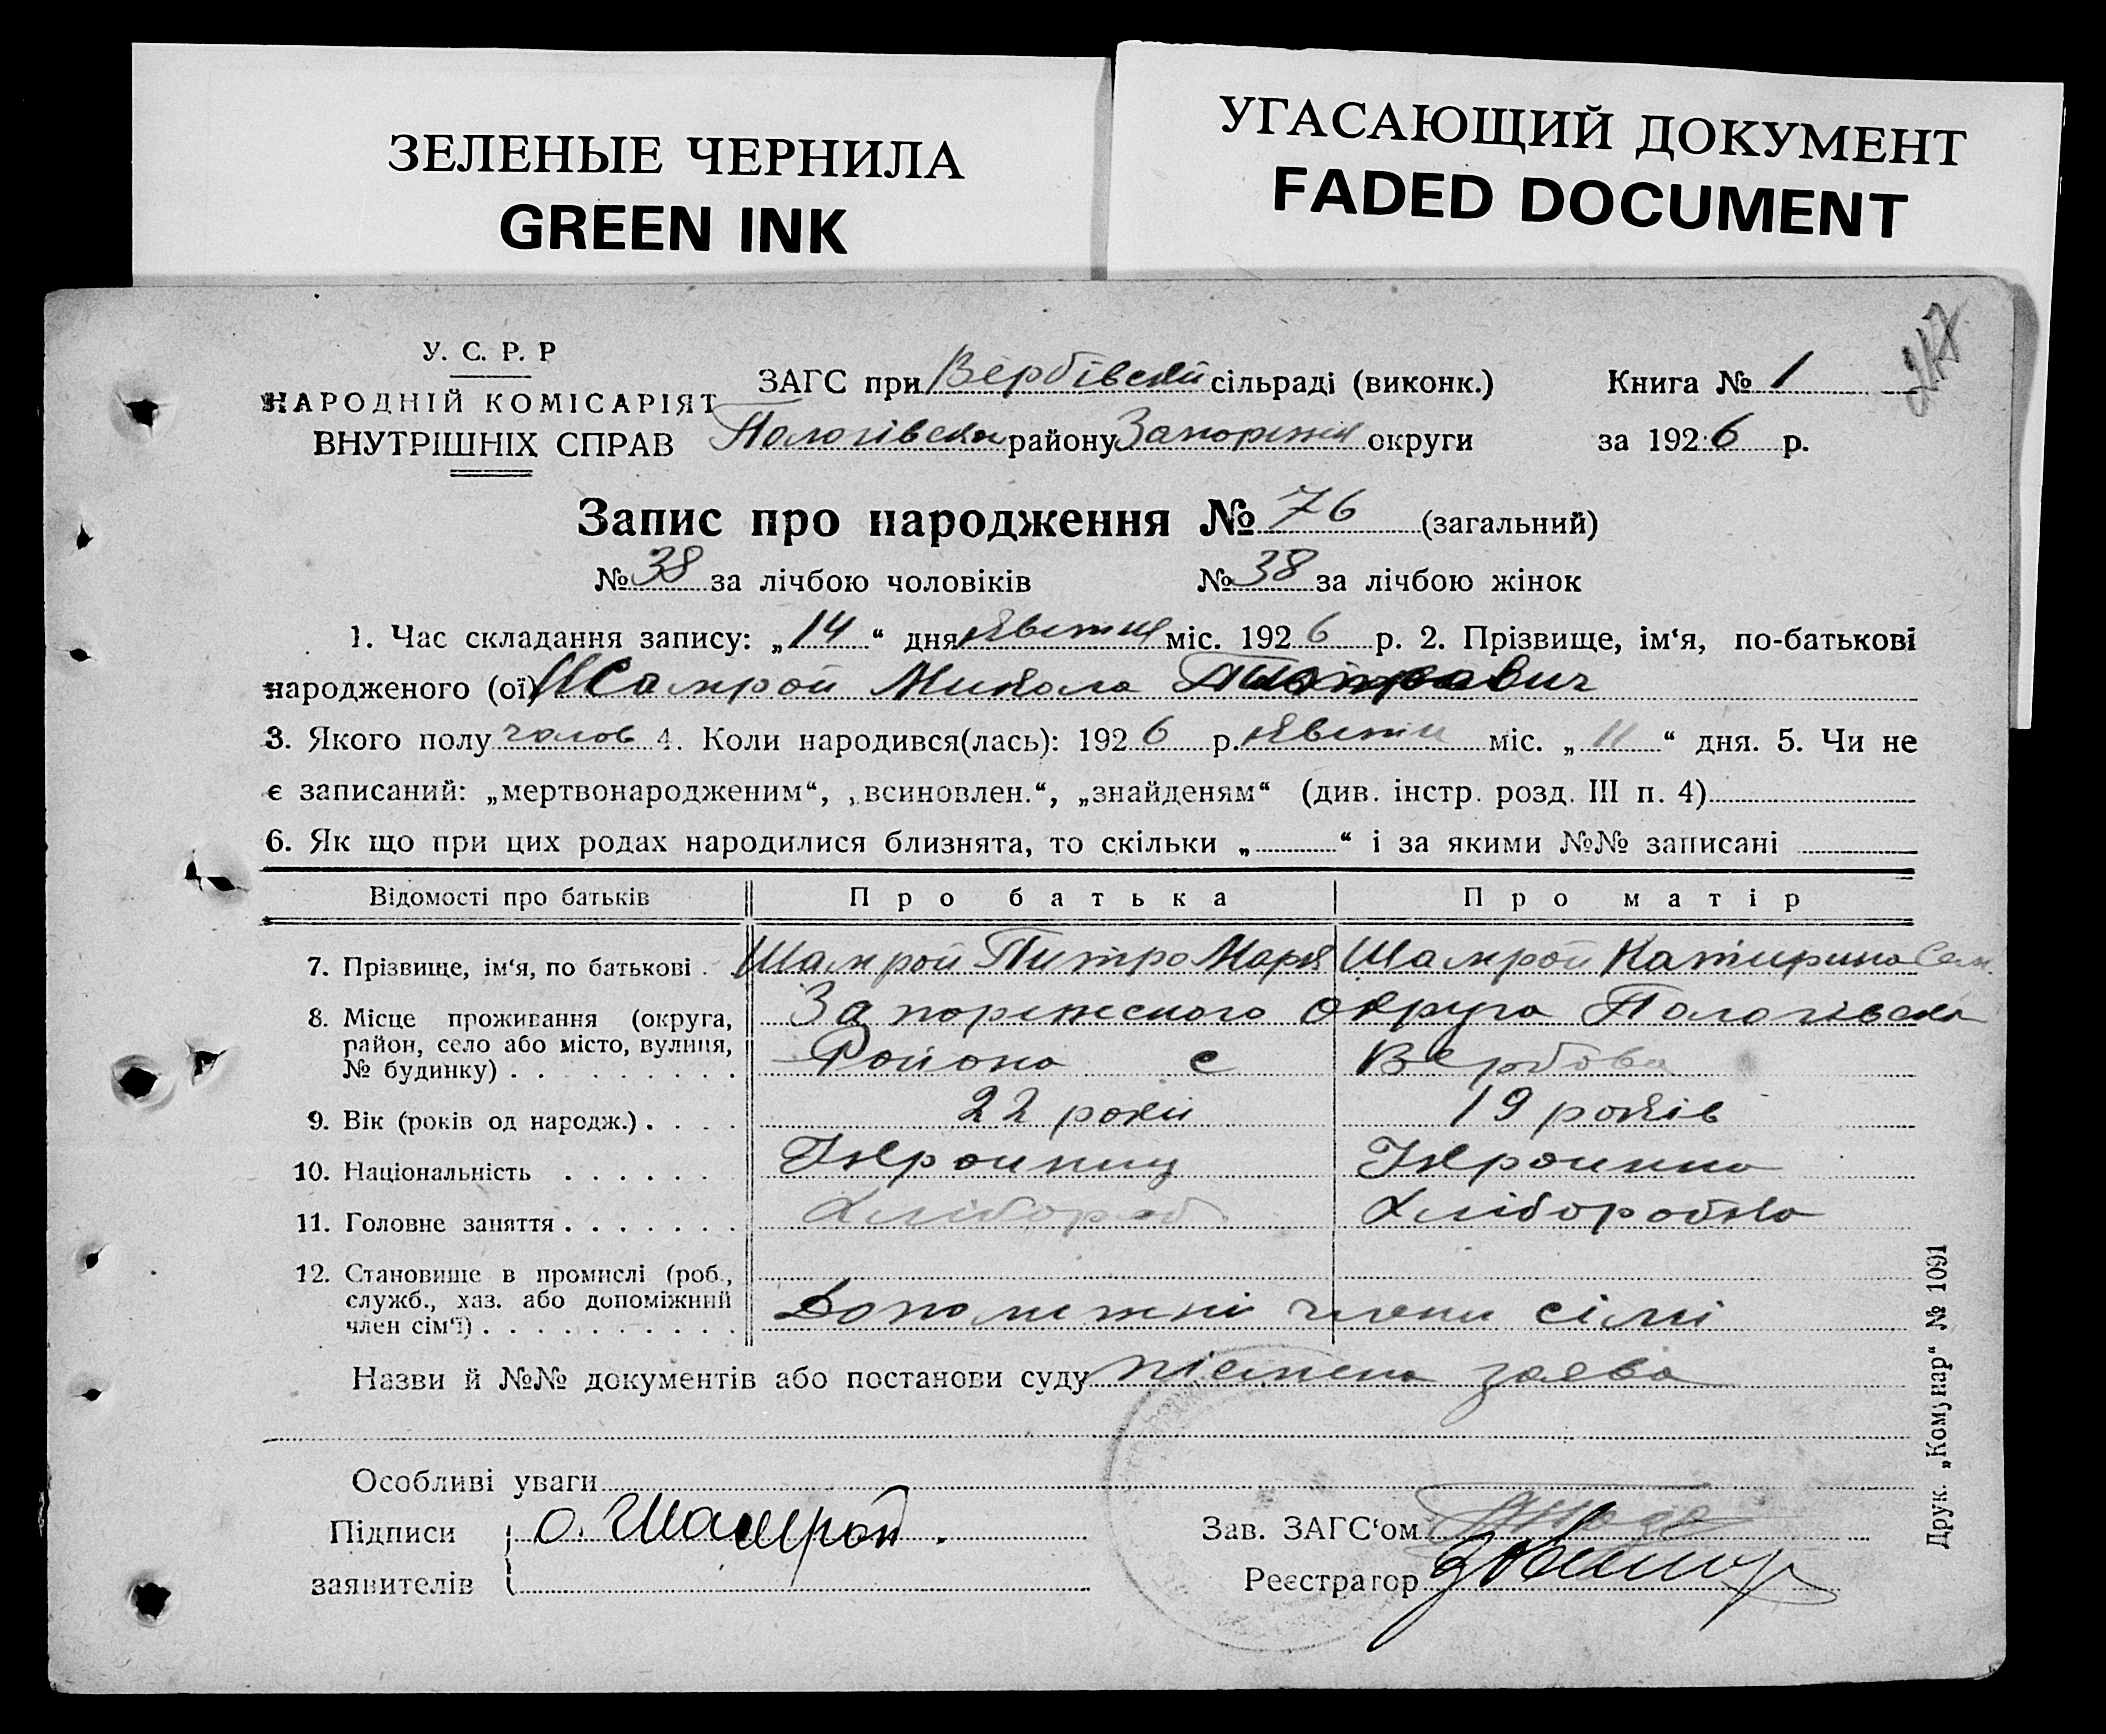 ЗЕЛЕНЫЕ ЧЕРНИЛА
GREEN INK
УГАСАЮЩИЙ ДОКУМЕНТ
FADED DOCUMENT
217
У. С. Р. Р
НАРОДНІЙ КОМІСАРІЯТ
ВНУТРІШНІХ СПРАВ
ЗАГС при Вербівскій сільраді (виконк.)
Пологівскн району Запоріжн округи
Книга № 1
за 1926 р.
Запис про народження № 76 (загальний)
№ 38 за лічбою чоловіків № 38 за лічбою жінок
1. Час складання запису: „14“ дня квітня міс. 1926 р. 2. Прізвище, ім‘я, по-батькові
народженого (ої) Шамрой Микола
3. Якого полу чолов 4. Коли народився(лась): 1926 р. квітн міс. „11“ дня. 5. Чи не
є записаний: „мертвонародженим“, „всиновлен.“, „знайденям“ (див. інстр. розд. III п. 4)
6. Як що при цих родах народилися близнята, то скільки „ “ і за якими №№ записані
Відомості про батьків Про батька Про матір
7. Прізвище, ім‘я, по батькові . . Шамрой Питро Марк Шамрой Катирина Сем.
8. Місце проживання (округа, район, село або місто, вулиця, № будинку) . . . . . . . . . Запоріжского округа Пологівска
Района с Вербова
9. Вік (років од народж.) . . . . 22 роки 19 років
10. Національність . . . . . . Украиниц Украинка
11. Головне заняття . . . . . . . Хлібороб Хліборобка
12. Становище в промислі (роб., служб., хаз. або допоміжний член сім‘ї) . . . . . . . . . . Допоміжні члени сімі
Назви й №№ документів або постанови суду пісмена заява
Особливі уваги
Підписи
заявителів
О. Шамрой.
Зав. ЗАГС‘ом
Реєстратор
Друк. „Комунар“ № 1091